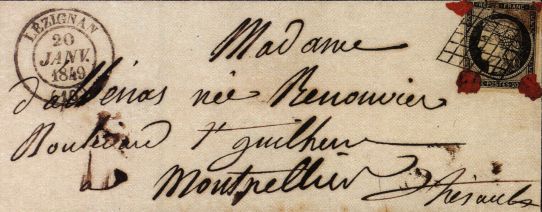 LEZIGNAN
20
JANV.
1849
REPUB. FRANC.
Madame
d'albénas née Renouvier
Boulevard St guilhem
Montpellier
hérault